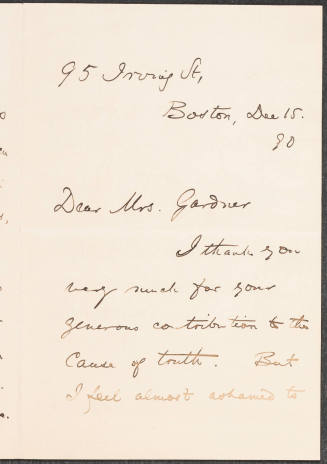 95 Irving St,
Boston, Dec 15.
90
Dear Mrs. Gardner
I thank you
very much for your
generous contribution to the
Cause of truth. But
I feel almost ashamed to